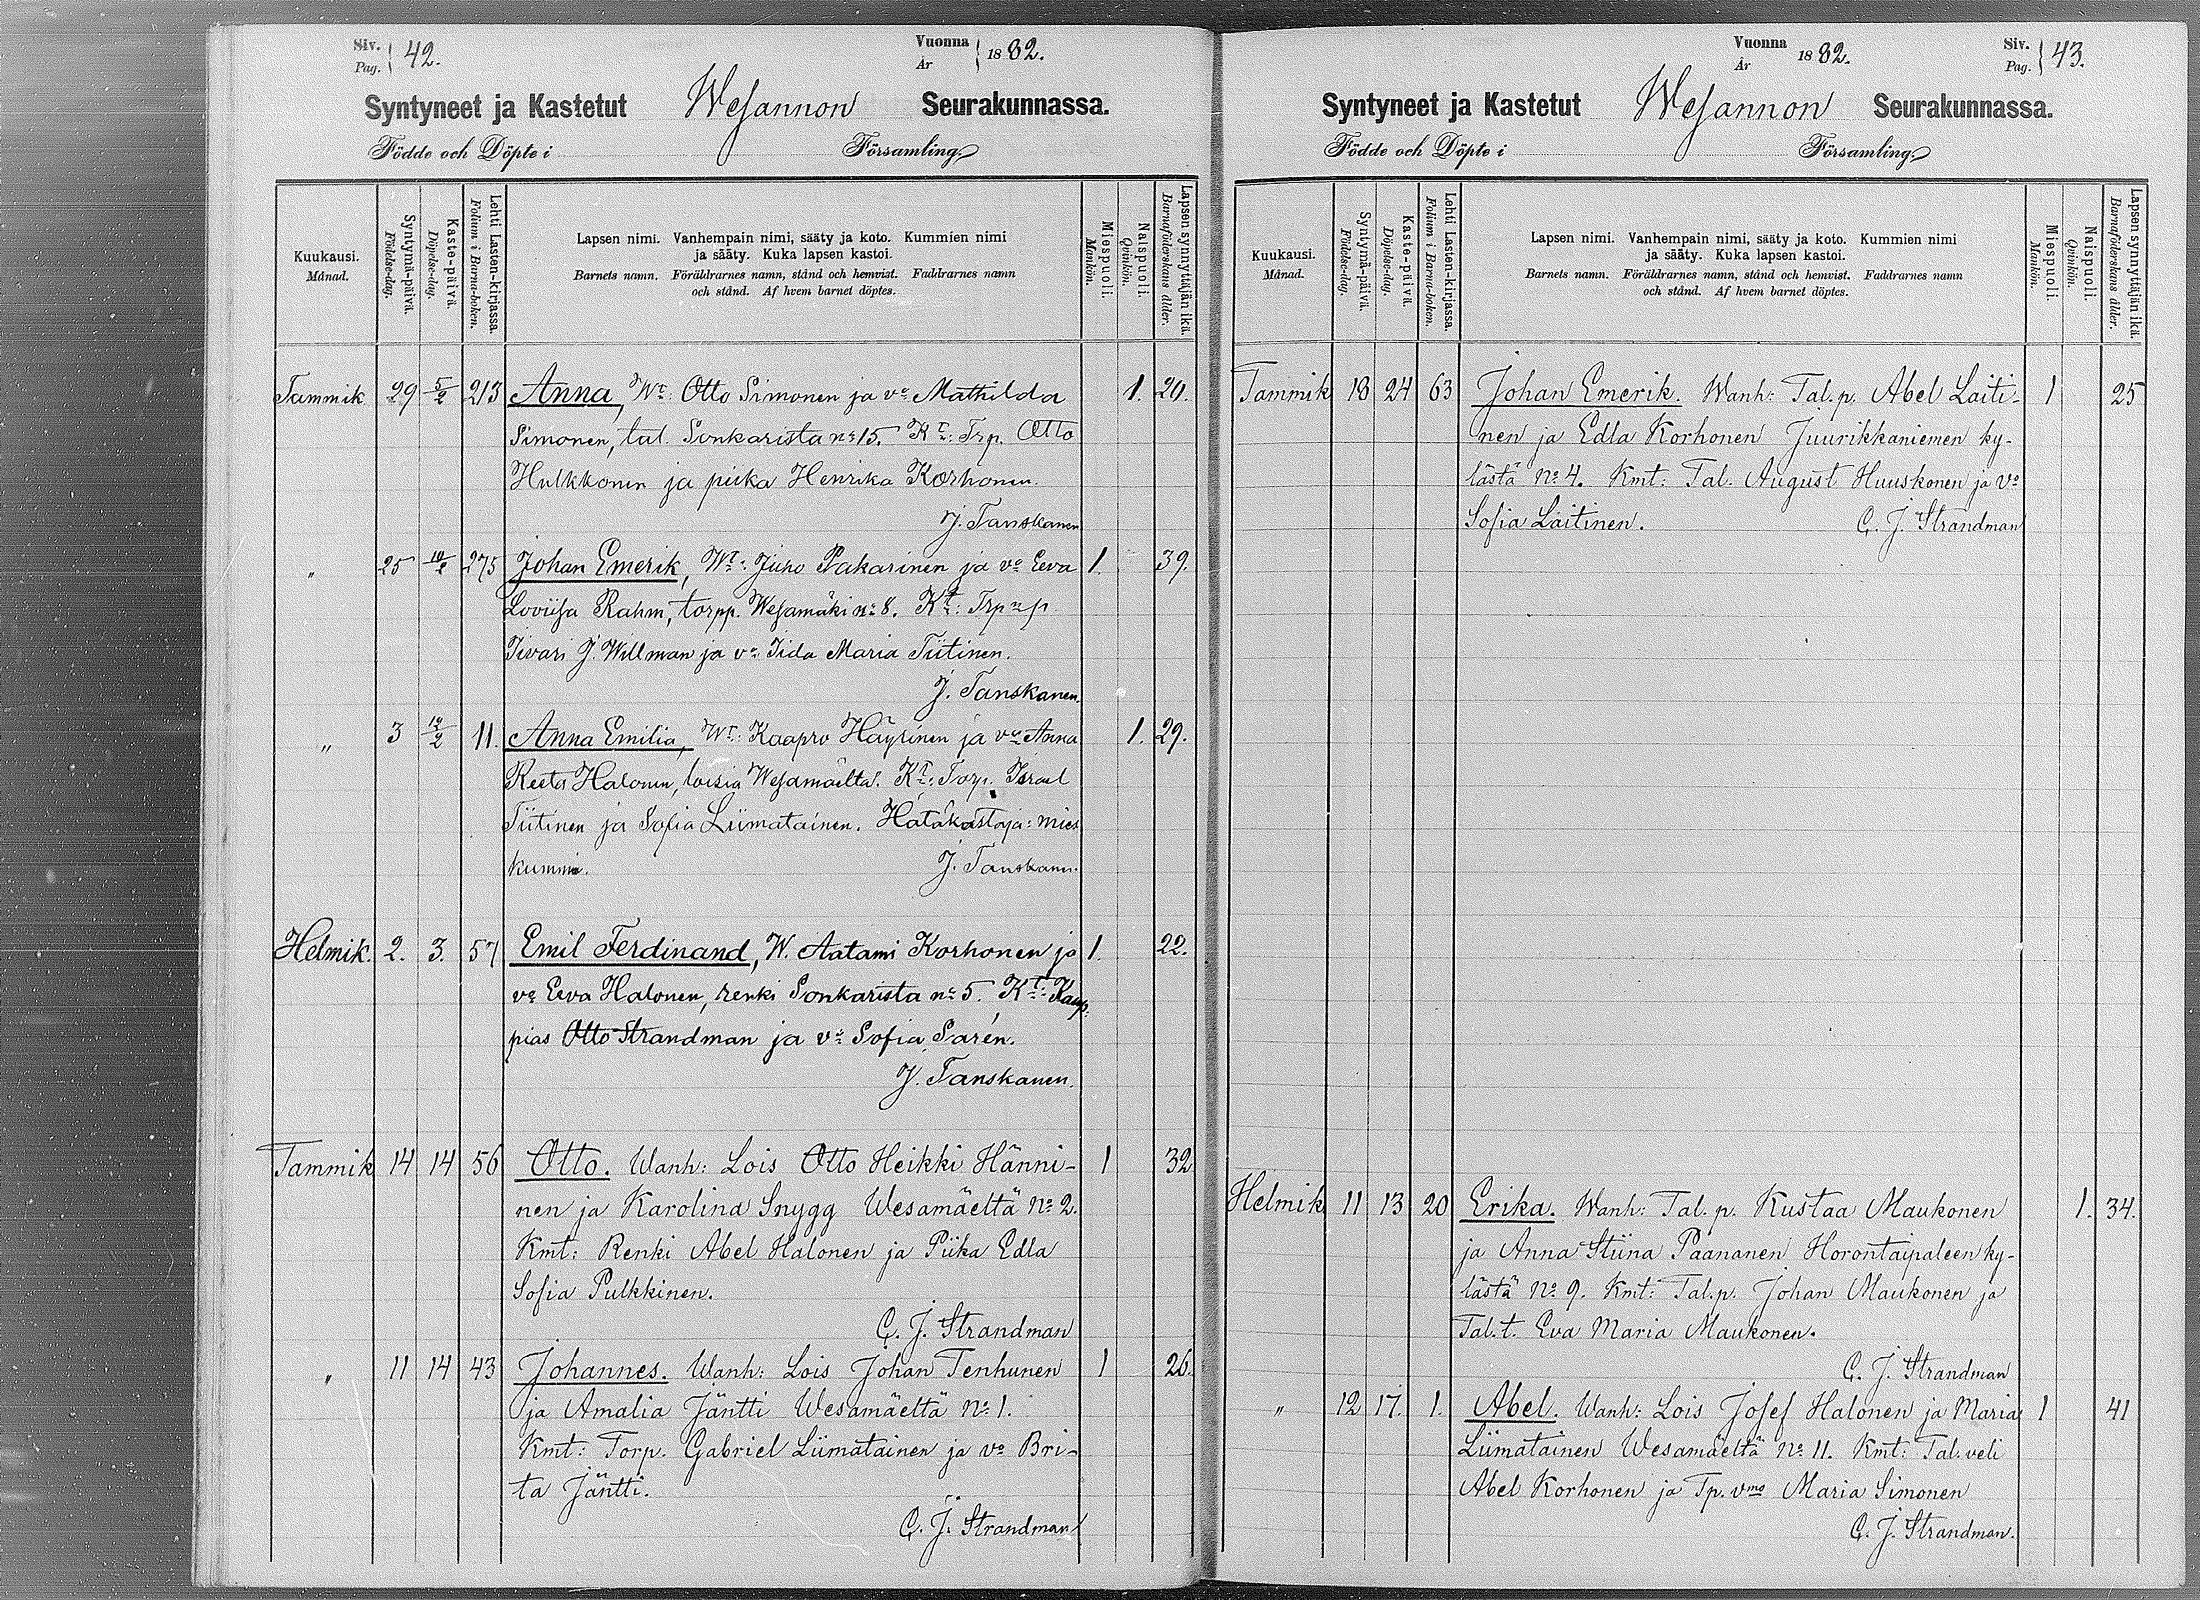 Siv. 42.
Pag.
Vuonna 1882.
År
Syntyneet ja Kastetut Wesannon Seurakunnassa.
Födde och Döpte i Församling.
Kuukausi.
Månad.
Syntymä-päivä.
Födelse-dag.
Kaste-päivä.
Döpelse-dag.
Lehti Lasten-kirjassa.
Folium i Barna-boken.
Lapsen nimi. Vanhempain nimi, sääty ja koto. Kummien nimi
ja sääty. Kuka lapsen kastoi.
Barnets namn. Föräldrarnes namn, stånd och hemvist. Faddrarnes namn
och stånd. Af hvem barnet döptes.
Miespuoli.
Mankön.
Naispuoli.
Qvinkön.
Lapsen synnyttäjän ikä.
Barnaföderskans ålder.
Tammik 29 5/2 213 Anna, Wt: Otto Simonen ja vo Mathilda 1. 20.
Simonen, tal. Sonkarista no 15. Kt: Trp. Otto
Hulkkonen ja piika Henrika Korhonen.
J. Tanskanen
„ 25 275 Johan Emerik, Wt: Juho Pakarinen ja vo Eeva 1. 39.
Loviisa Rahm, torpp. Wesamäki no 8. Kt: Trp
Iivari J. Willman ja vo Iida Maria Tiitinen.
J. Tanskanen.
„ 3 12/2 11. Anna Emilia, Wt: Kaapro Häyrinen ja vo Anna 1. 29.
Reeta Halonen, loisia Wesamäeltä. Kt: Torp. Israel
Tiitinen ja Sofia Liimatainen. Hätäkastaja: mies
kummi. J. Tanskanen.
Helmik. 2. 3. 57 Emil Ferdinand, W. Aatami Korhonen ja 1. 22.
vo Eeva Halonen, renki Sonkarista no 5. Kt: Kaup-
pias Otto Strandman ja vo Sofia Sarén.
J. Tanskanen.
Tammik 14 14 56 Otto. Wanh: Lois Otto Heikki Hänni- 1 32
nen ja Karolina Snygg Wesamäeltä No 2.
Kmt: Renki Abel Halonen ja Piika Edla
Sofia Pulkkinen.
C. J. Strandman
„ 11 14 43 Johannes. Wanh: Lois Johan Tenhunen 1 26.
ja Amalia Jäntti Wesamäeltä No 1.
Kmt: Torp. Gabriel Liimatainen ja vo Bri-
ta Jäntti.
C. J. Strandman
Vuonna 1882.
År
Siv. 43.
Pag.
Syntyneet ja Kastetut Wesannon Seurakunnassa.
Födde och Döpte i Församling.
Kuukausi.
Månad.
Syntymä-päivä.
Födelse-dag.
Kaste-päivä.
Döpelse-dag.
Lehti Lasten-kirjassa.
Folium i Barna-boken.
Lapsen nimi. Vanhempain nimi, sääty ja koto. Kummien nimi
ja sääty. Kuka lapsen kastoi.
Barnets namn. Föräldrarnes namn, stånd och hemvist. Faddrarnes namn
och stånd. Af hvem barnet döptes.
Miespuoli.
Mankön.
Naispuoli.
Qvinkön.
Lapsen synnyttäjän ikä.
Barnaföderskans ålder.
Tammik 18 24 63 Johan Emerik. Wanh: Tal.p. Abel Laiti- 1 25
nen ja Edla Korhonen Juurikkaniemen ky-
lästä No 4. Kmt: Tal. August Huuskonen ja Vo
Sofia Laitinen. C. J. Strandman
Helmik 11 13 20 Erika. Wanh: Tal.p. Kustaa Maukonen 1. 34.
ja Anna Stiina Paananen Horontaipaleen ky-
lästä No 9. Kmt: Tal.p. Johan Maukonen ja
Tal.t. Eva Maria Maukonen.
C. J. Strandman
„ 12 17. 1. Abel. Wanh: Lois Josef Halonen ja Maria 1 41
Liimatainen Wesamäeltä No 11. Kmt: Tal. veli
Abel Korhonen ja Tp. vmo Maria Simonen
C. J. Strandman.